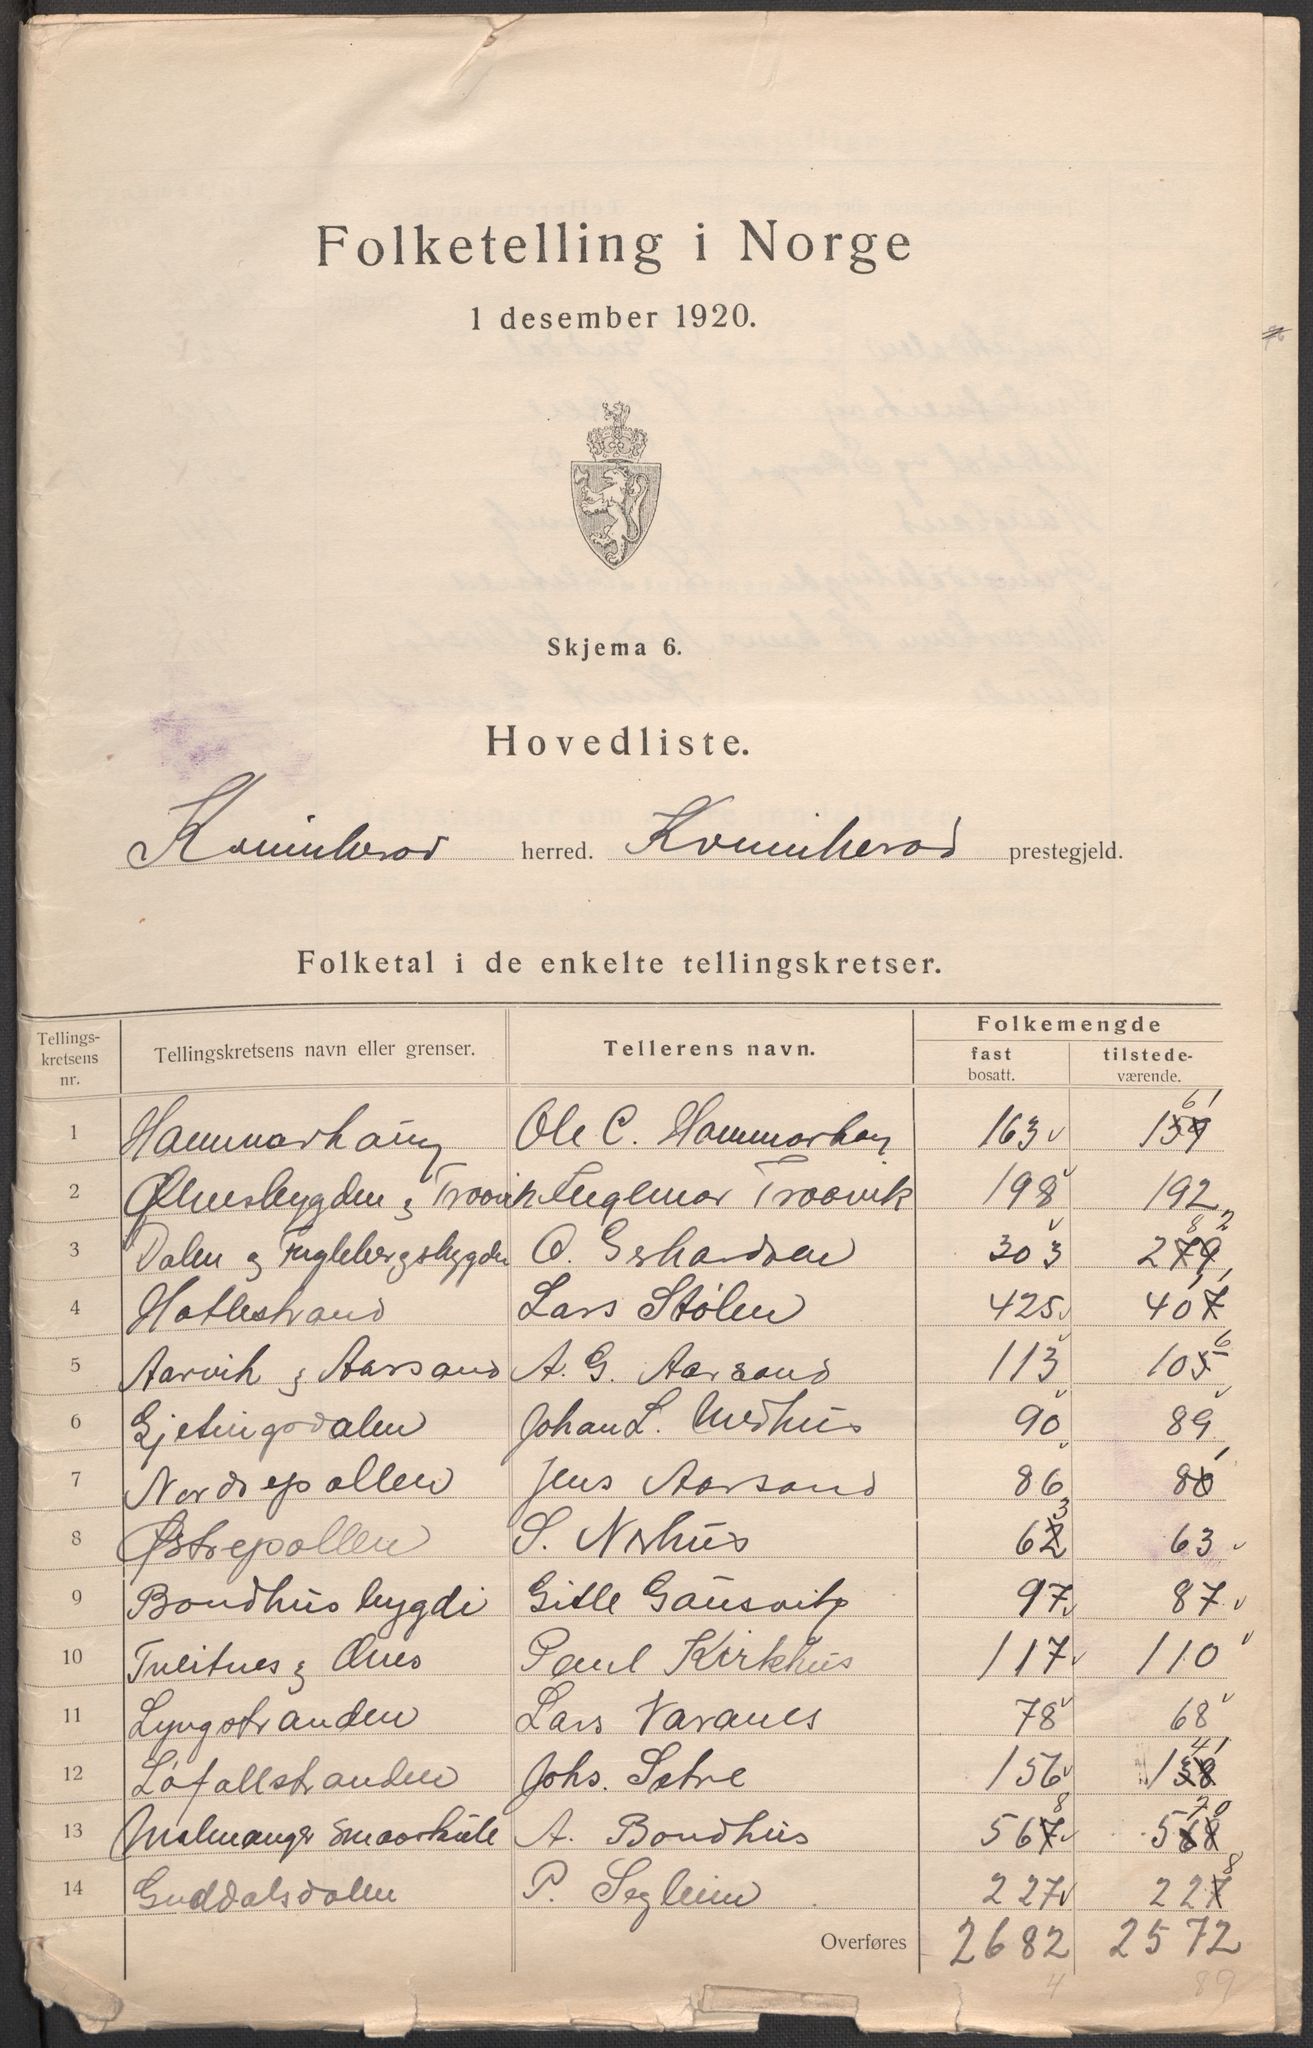 Folketelling i Norge
1 desember 1920.
Skjema 6.
Hovedliste.
Kvinnherad herred. Kvinnherad prestegjeld.
Folketal i de enkelte tellingskretser.
Tellings-kretsens nr. Tellingskretsens navn eller grenser. Tellerens navn. Folkemengde
fast bosatt. tilstede-værende.
1 Hammarhaug Ole C. Hammarhaug 163 159 61
2 Ølmesbygden & Traavik Ingemar Traavik 198 192
3 Dalen & Fuglebergsbygden O. Gerhardsen 303 279 82
4 Hatlestrand Lars Stølen 425 407 11
5 Aarvik & Aarsand A. G. Aarsand 113 105 6
6 Gjetingsdalen Johan L. Medhus 90 89
7 Nordrepollen Jens Aarsand 86 80 1
8 Østrepollen S. Nerhus 62 3 63
9 Bondhusbygdi Gitle Gausvik 97 87
10 Tveitnes & Ænes Paul Kirkhus 117 110
11 Lyngstranden Lars Varanes 78 68
12 Løfallstranden Johs. Sætre 156 138 41
13 Malmanger Smaaskule A. Bondhus 567 8 568 70
14 Guddalsdalen P. Segleim 227 227 8
Overføres 2682 2572
4 89